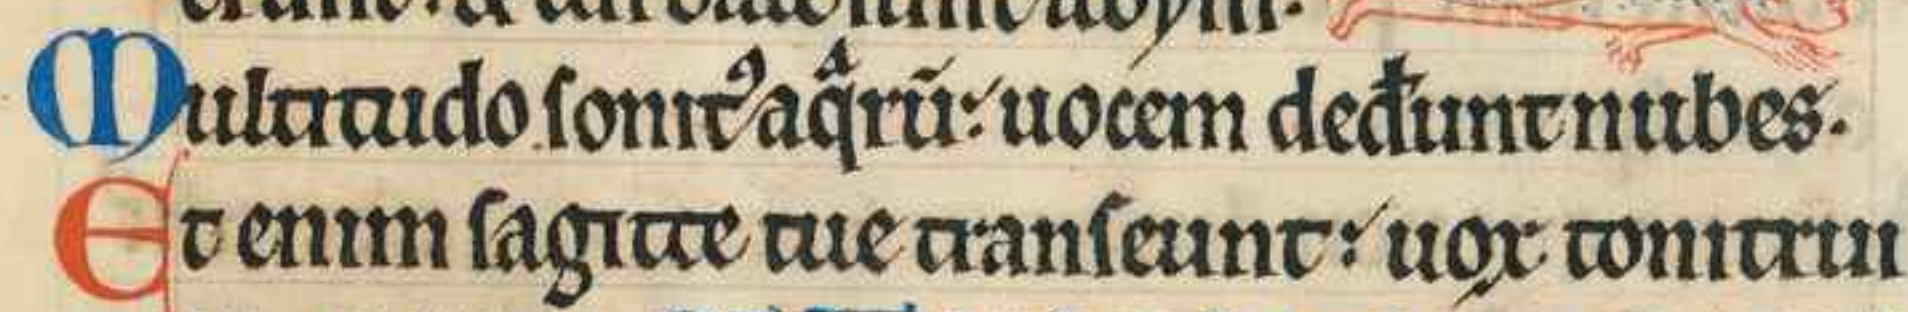 Multitudo sonitꝰ aqͣrū: uocem dederunt nubes.
Et enim sagitte tue transeunt: uox tonitrui